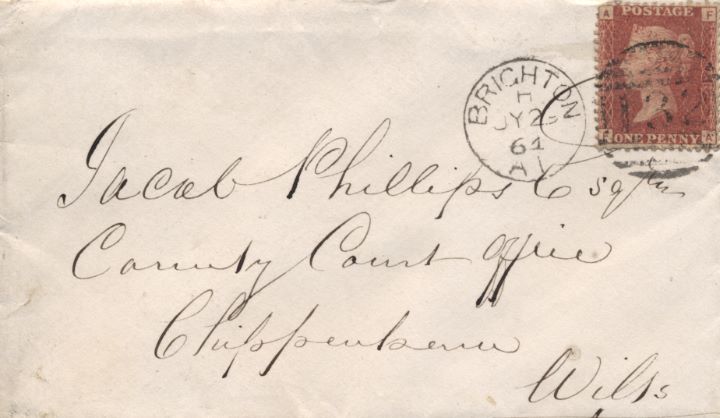 POSTAGE
A F
F A
ONE PENNY
132
BRIGHTON
H
JY 2
64
A 1
Jacob Phillips Esqre
County Court Office
Chippenham
Wilts